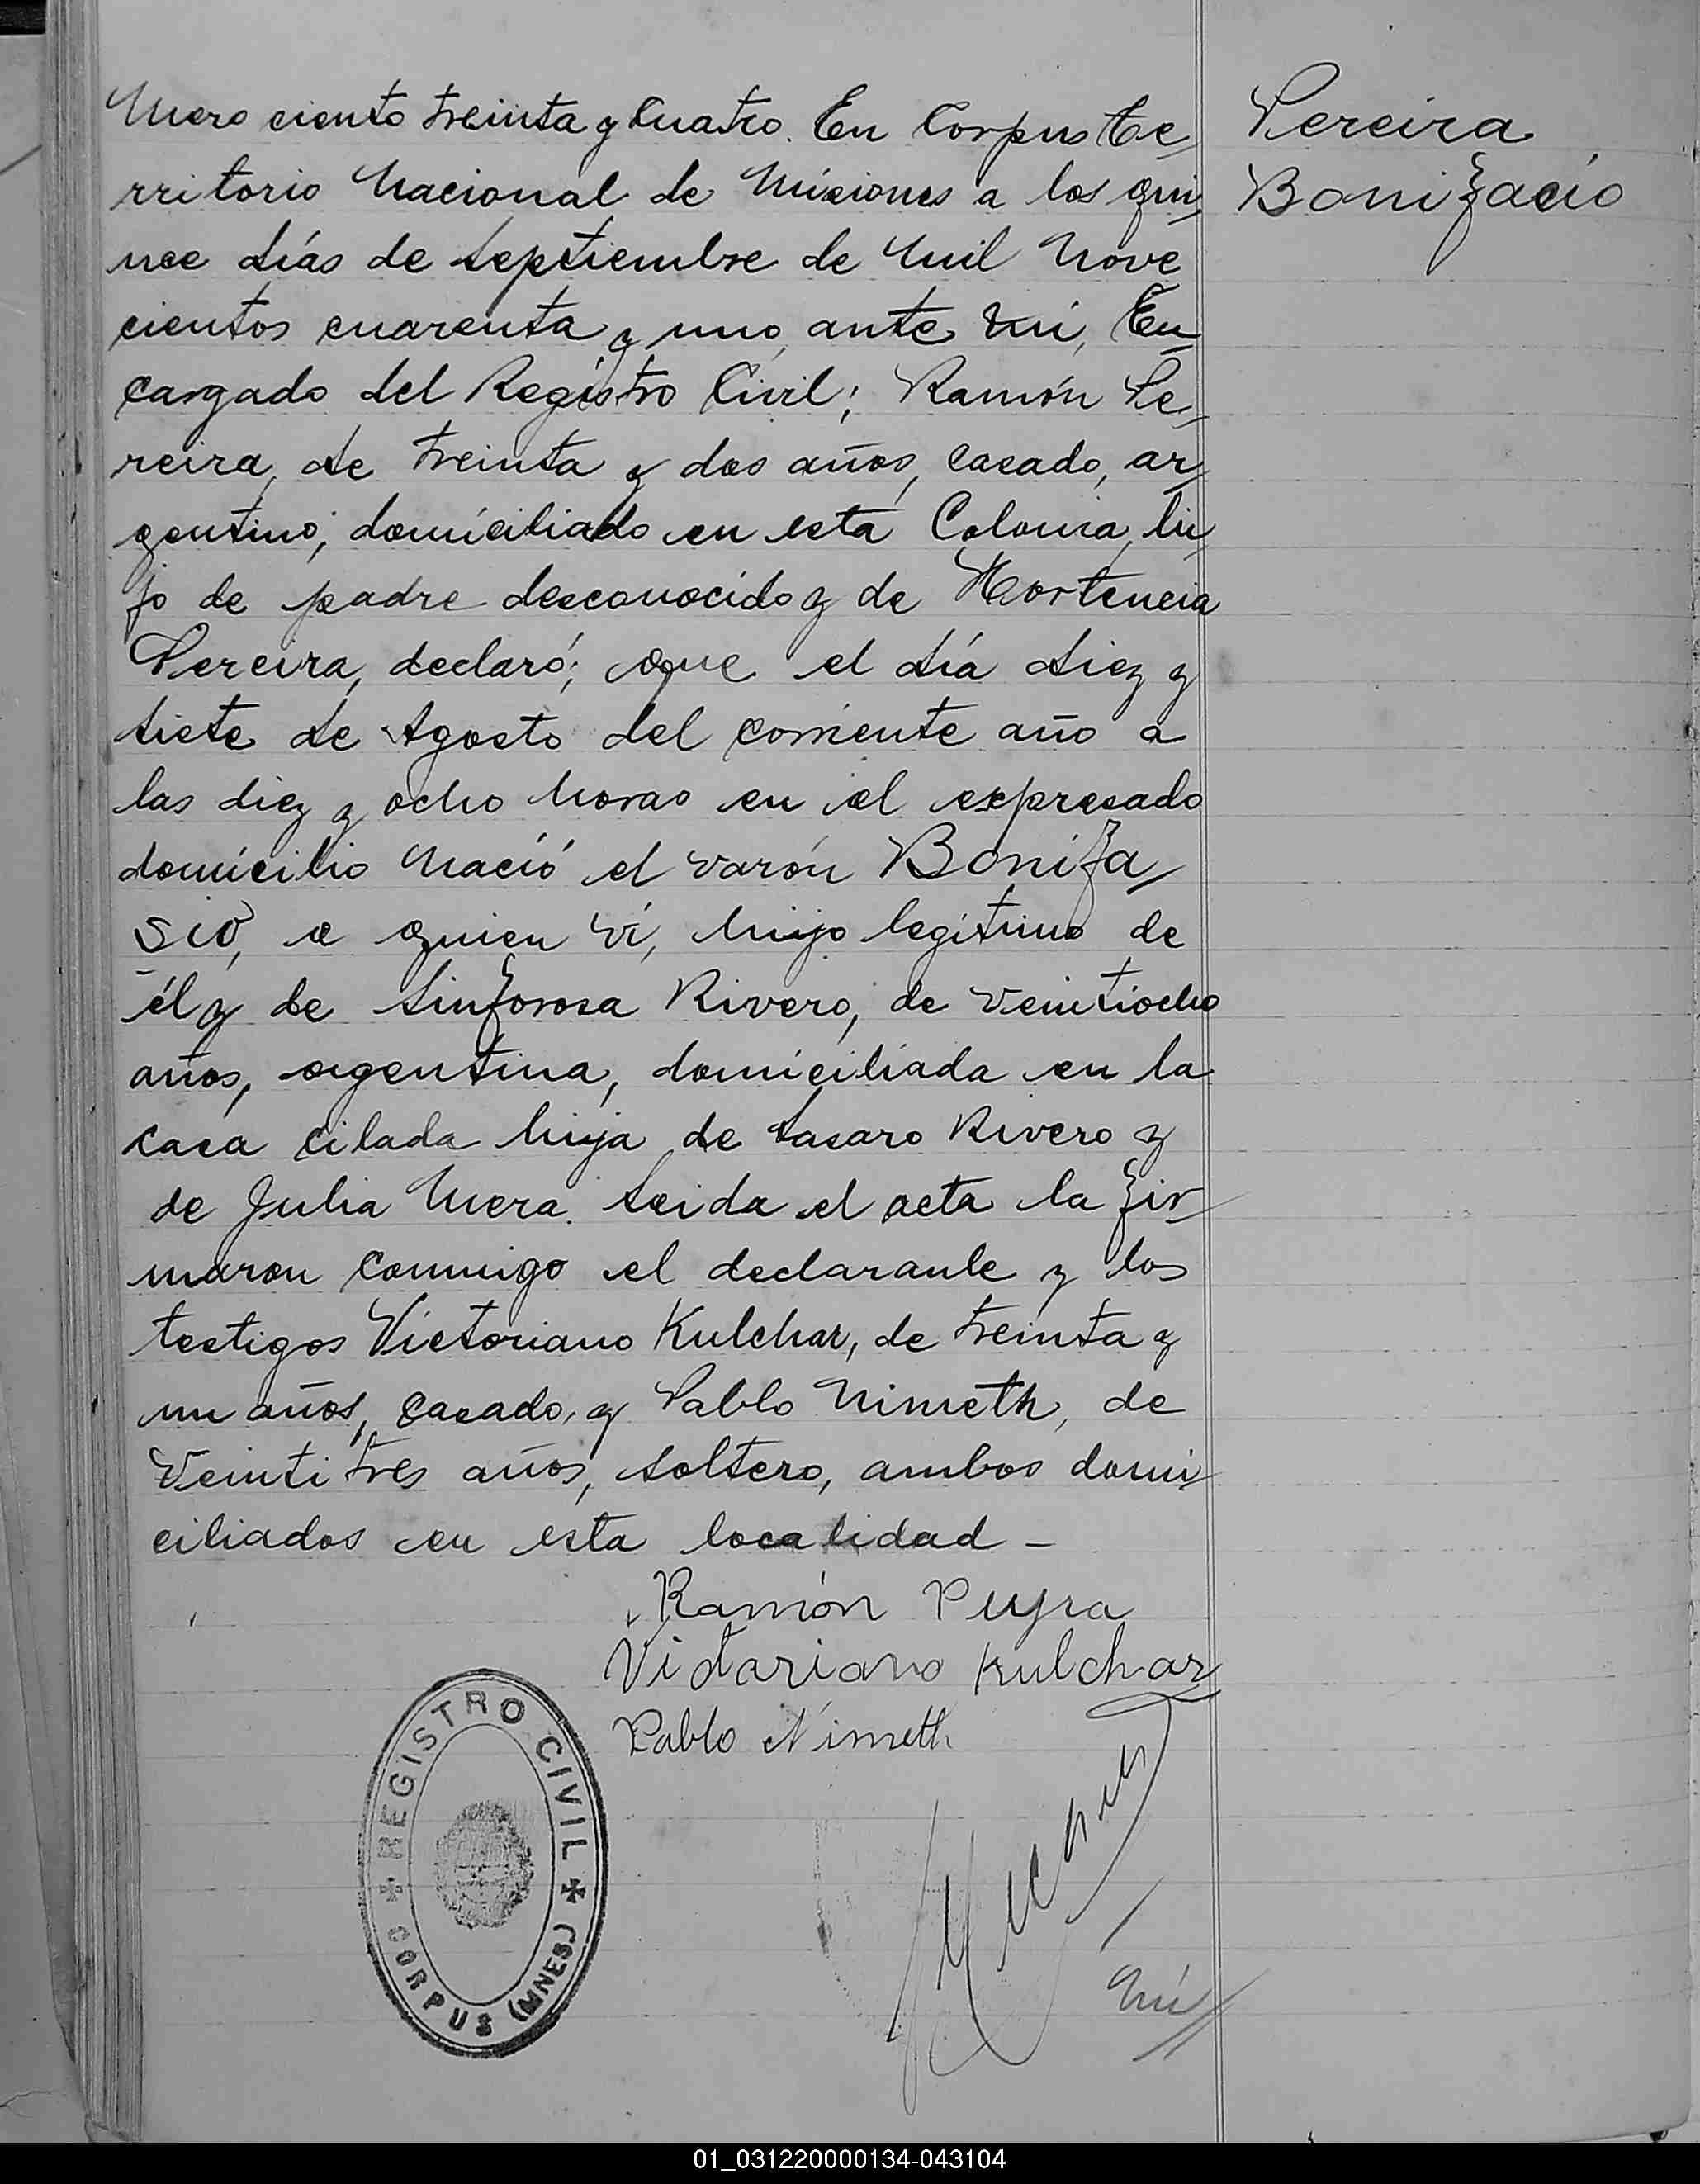 mero ciento treinta y Cuatro. En Corpus Te
rritorio Nacional de Misiones a los quin
nce días de Septiembre de Mil Nove
cientos cuarenta y uno, ante mí, En
cargado del Registro Civil; Ramón Pe
reira, de treinta y dos años, casado, ar
gentino, domiciliado en esta Colonia, hi
jo de padre desconocido y de Hortencia
Pereira, declaró; que el día diez y
siete de Agosto del corriente año a
las diez y ocho horas en el expresado
domicilio Nació el varón Bonifa
sio, a quien ví, hijo legítimo de
él y de Sinforosa Rivero, de veintiocho
años, argentina, domiciliada en la
casa citada hija de Lasaro Rivero y
de Julia Mera. Leida el acta la fir
maron conmigo el declarante y los
testigos Victoriano Kulchar, de treinta y
un años, casado, y Pablo Nimeth, de
Veinti tres años, soltero, ambos domi
ciliados en esta localidad -
Pereira
Bonifacio
Ramón Peyra
Victoriano Kulchar
Pablo Nimeth
Nú
REGISTRO CIVIL
CORPUS (MNES.)
01_031220000134-043104